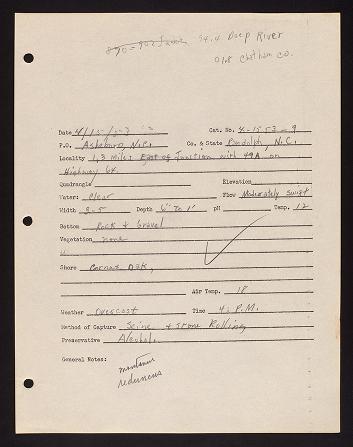 54.4 Deep River
018 Chatham Co.
Date 4/15/53 Cat. No. 4-1553-9
P.O. Asheboro, N.C. Co. & State Randolph, N.C.
Locality 1.3 Miles East of Junction with 49A on
Highway 64.
Quadrangle Elevation
Water: Clear Flow Moderately swift
Width 3-5 Depth 6" to 1' pH Temp. 12
Bottom Rock & Gravel
Vegetation none
Shore Cornus, Oak,
Air Temp. 18
Weather Overcast Time 4: P.M.
Method of Capture Seine & Stone Rolling
Preservative Alcohol.
General Notes: